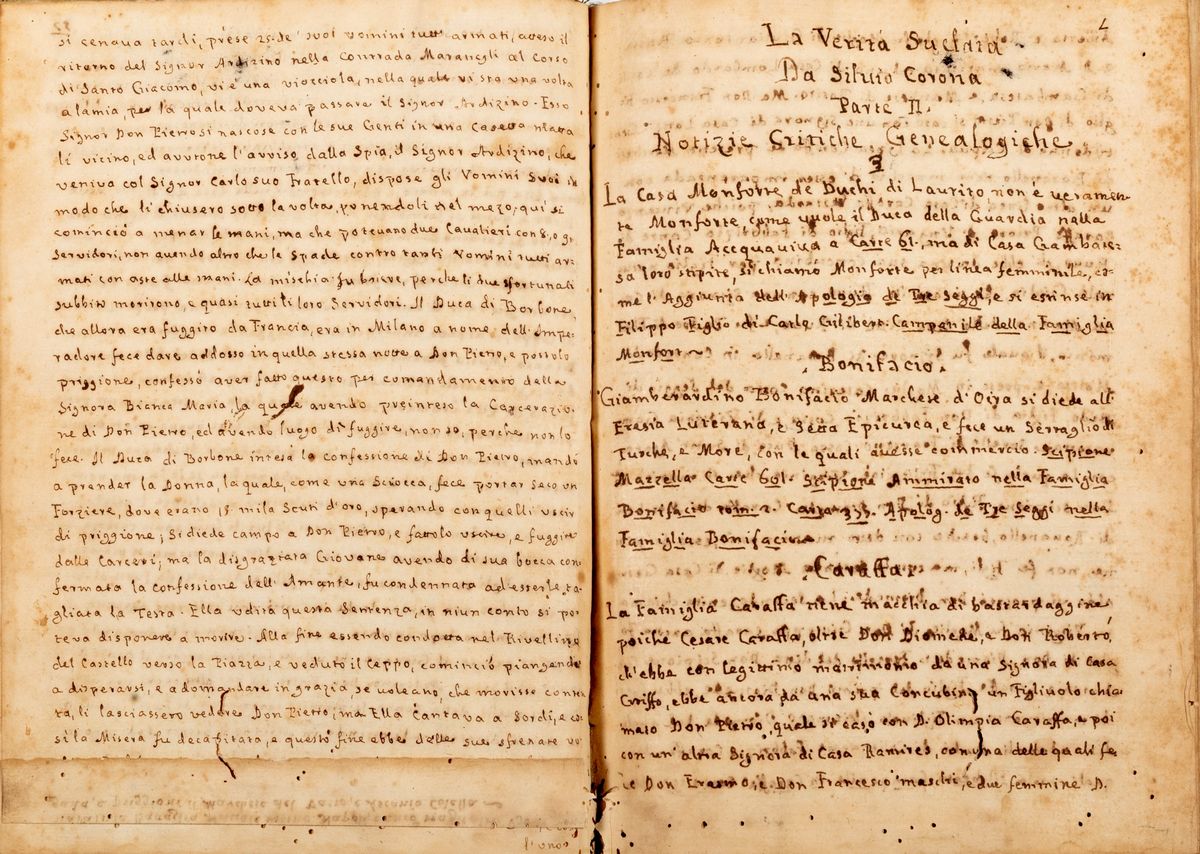 32
si cenava tardi, prese 25 de' suoi uomini tutti armati, aveso il
ritorno del Signor Ardizino nella Contrada Maranegli al Corso
di Santo Giacomo, vi è una viocciola, nella quale vi sta una volta
a lamia, per la quale doveva passare il Signor Ardizino. Esso
Signor Don Pietro si nascose con le sue Genti in una Casetta
lì vicino, ed avutone l'avviso dalla Spia, il Signor Ardizino, che
veniva col Signor Carlo suo Fratello, dispose gli Uomini Suoi in
modo che li chiusero sotto la volta, ponendoli nel mezo, qui si
cominciò a menar le mani, ma che poteuano due Cavalieri con 8, o 9
Servidori, non auendo altro che le Spade contro tanti Uomini tutti ar-
mati con aste alle mani. La mischia fu brieve, perche li due sfortunati
subbito morirono, e quasi tutti li loro Servidori. Il Duca di Borbone,
che allora era fuggito da Francia, era in Milano a nome dell'Impe-
radore fece dare addosso in quella stessa notte a Don Pietro, e postolo
priggione, confessò aver fatto questo per comandamento della
Signora Bianca Maria, la quale avendo preinteso la Carcerazio-
ne di Don Pietro, ed avendo luogo di fuggire, non so, perche non lo
fece. Il Duca di Borbone intesa la confessione di Don Pietro, mandò
a prender la Donna, la quale, come una Sciocca, fece portar seco un
Forziere, dove erano 15 mila Scuti d'oro, sperando con quelli uscir
di priggione; Si diede campo a Don Pietro, e fattolo uscire, e fuggire
dalle Carceri; ma la disgraziata Giovane avendo di sua bocca con-
fermata la confessione dell'Amante, fu condennata ad esserle ta-
gliata la Testa. Ella udita questa Sentenza, in niun conto si po-
teva disponere a morire. Alla fine essendo condotta nel Rivellino
del Castello verso la Piazza, e veduto il ceppo, cominciò piangendo
a disperarsi, e a domandare in grazia, se voleano, che morisse conten-
ta, li lasciassero vedere Don Pietro; ma Ella Cantava a Sordi, e co-
sì la Misera fu decapitata, e questo fine ebbe delle sue sfrenate vo-
l'uno
4
La Verità Suelata
Da Siluio Corona
Parte II.
Notizie Critiche, Genealogiche
La Casa Monforte de Duchi di Laurito non è ueramen-
te Monforte, come vuole il Duca della Guardia nella
Famiglia Accquaviva a Carte 61. ma di Casa Gambate-
sa loro stipite, si chiamò Monforte per linea femminile, co-
me l'Aggiunta dell'Apologio di Tre Seggi, e si estinse in
Filippo Figlio di Carlo Gilibert. Campanile della Famiglia
Monfort
Bonifacio.
Giamberardino Bonifacio Marchese d'Oira si diede all'
Eresia Luterana, e Setta Epicurea, e fece un Serraglio di
Turche, e More, con le quali auesse commercio. Scipione
Mazzella Carte 601. Scipione Ammirato nella Famiglia
Bonifacio tom. 2. Carta 335. Apolog. de Tre Seggi nella
Famiglia Bonifacio
Caraffa.
La Famiglia Caraffa tiene macchia di bastardaggine
poiche Cesare Caraffa, oltre Don Diomede, e Don Roberto,
ch'ebbe con legittimo matrimonio da una Signora di Casa
Griffo, ebbe ancora da una sua Concubina un Figliuolo chia-
mato Don Pietro, quale si casò con D. Olimpia Caraffa, e poi
con un'altra Signora di Casa Ramires, con una delle quali fe-
ce Don Erasmo, e Don Francesco maschi, e due femmine D.